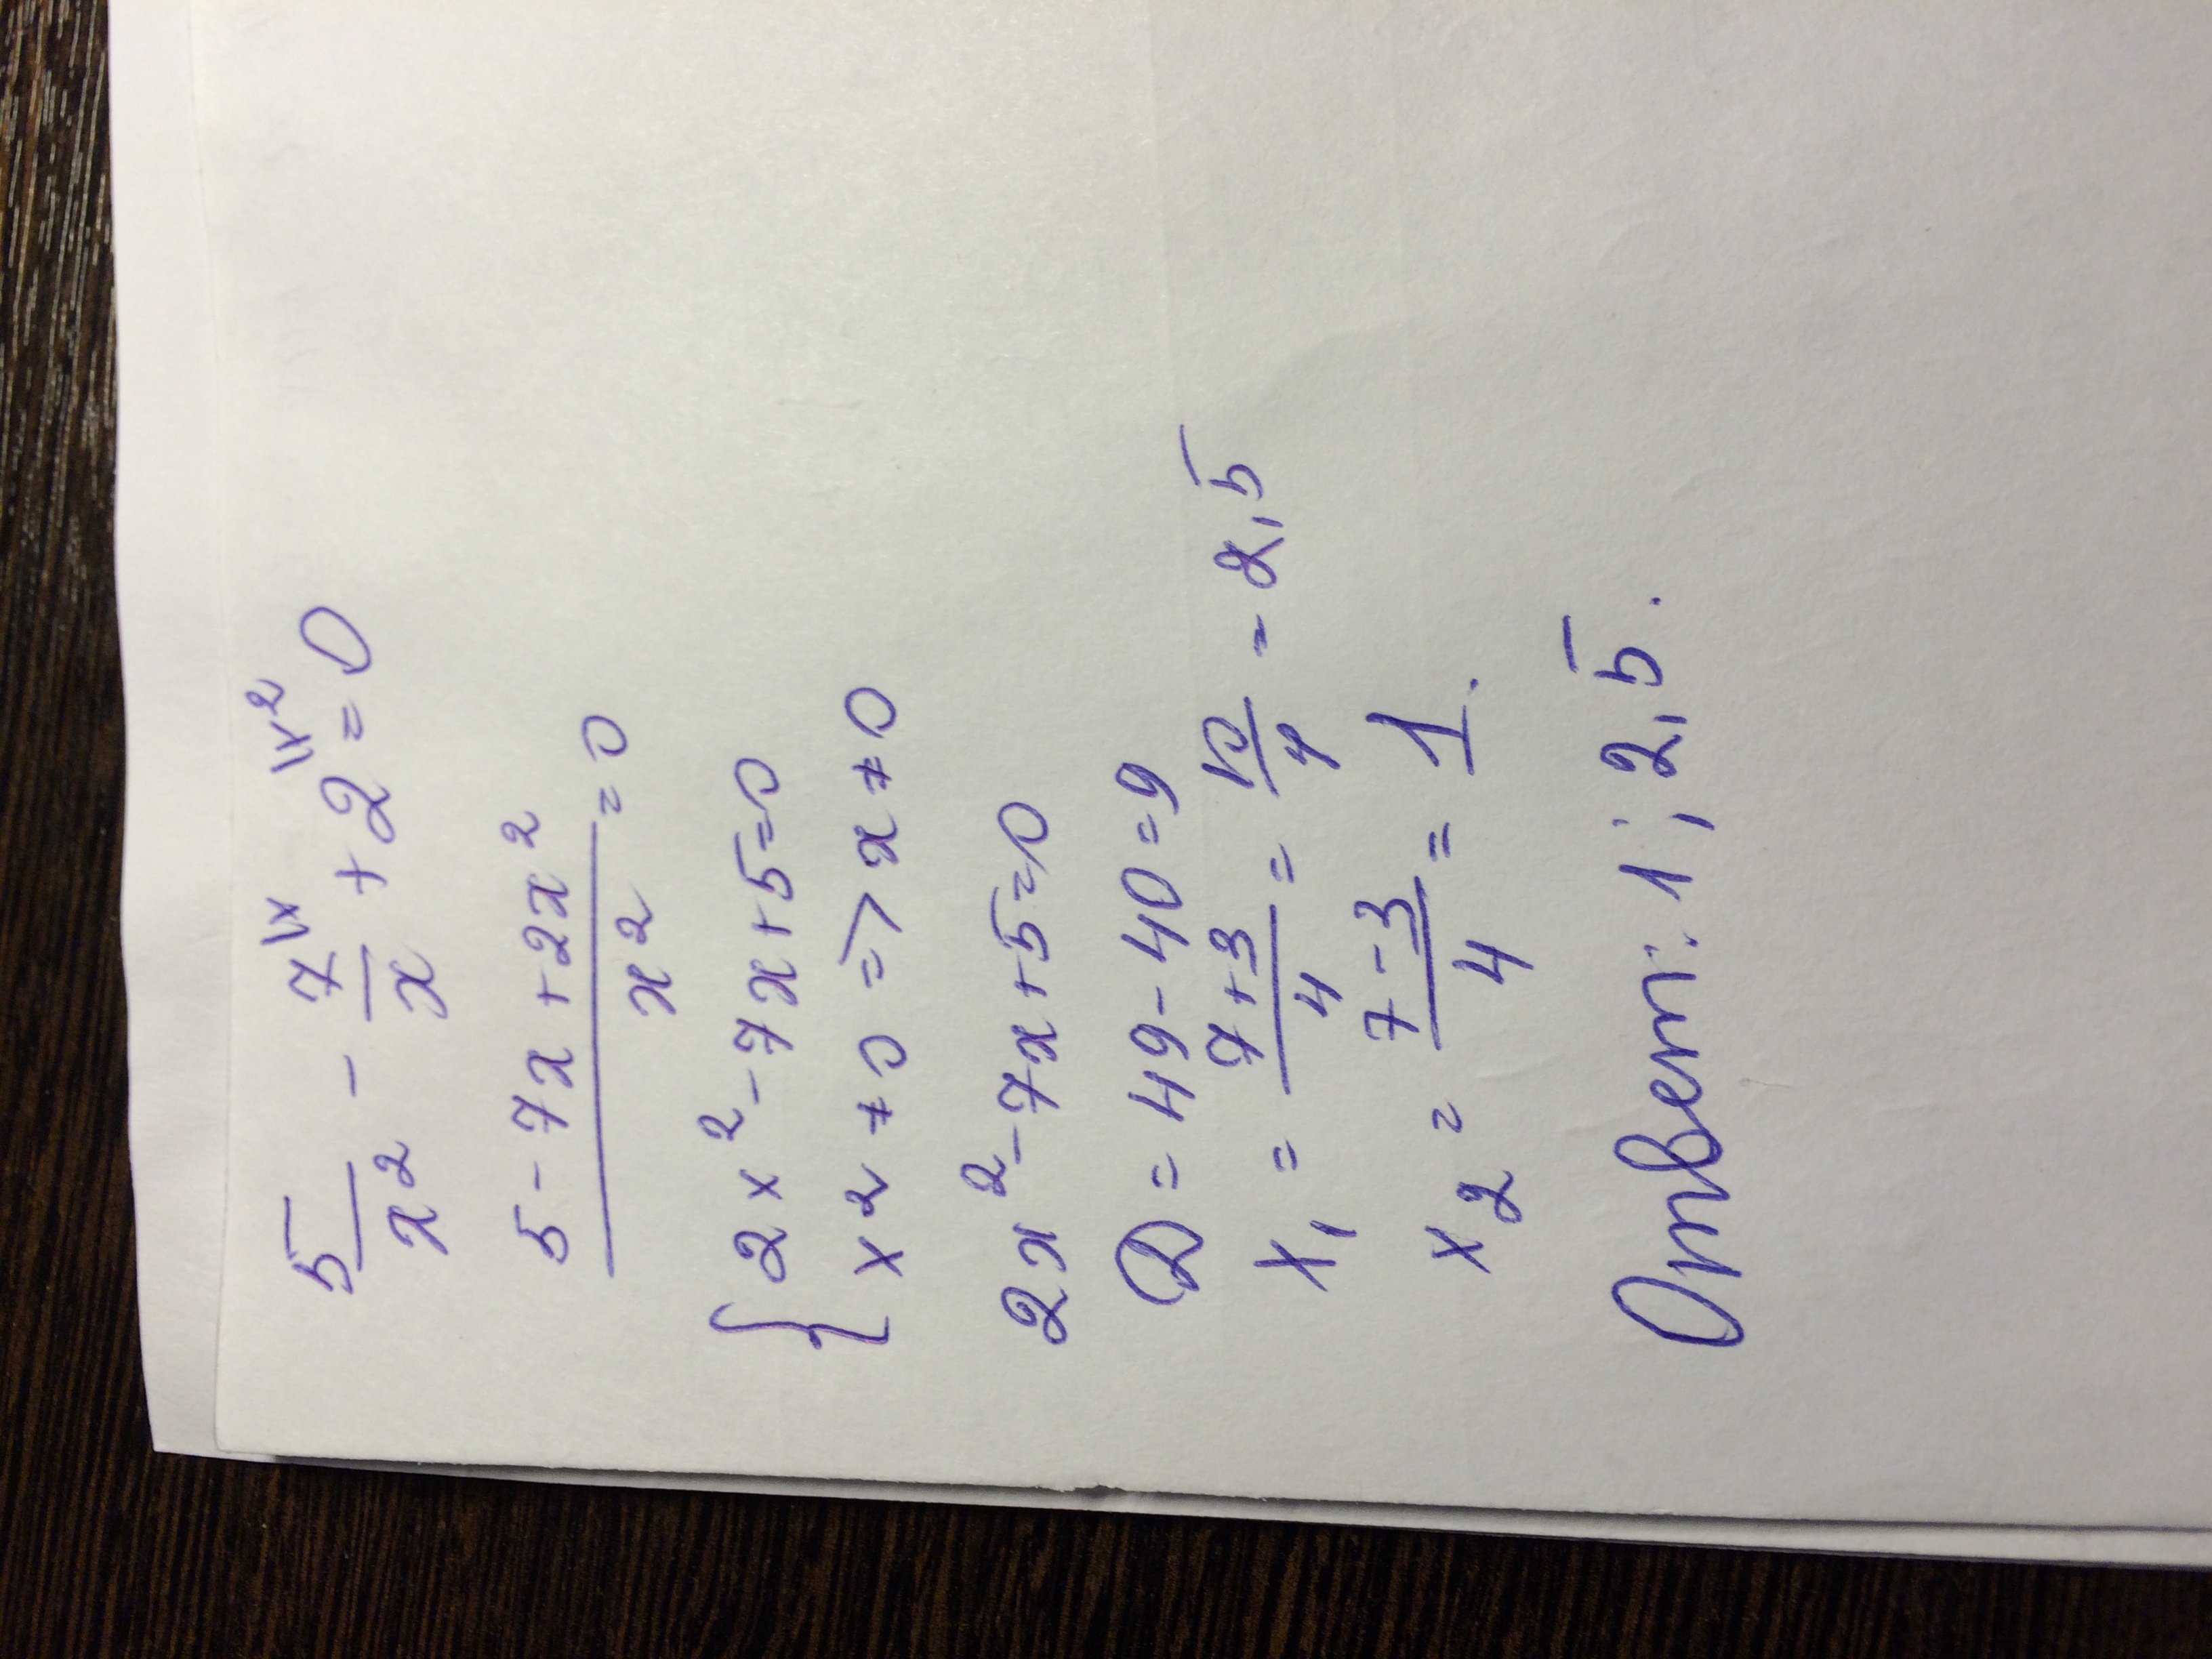 5/x² - 7\x/x + 2\x² = 0
(5 - 7x + 2x²)/x² = 0
{ 2x² - 7x + 5 = 0
x² ≠ 0 => x ≠ 0
2x² - 7x + 5 = 0
D = 49 - 40 = 9
x₁ = (7+3)/4 = 10/4 = 2,5
x₂ = (7-3)/4 = 1.
Ответ: 1; 2,5.